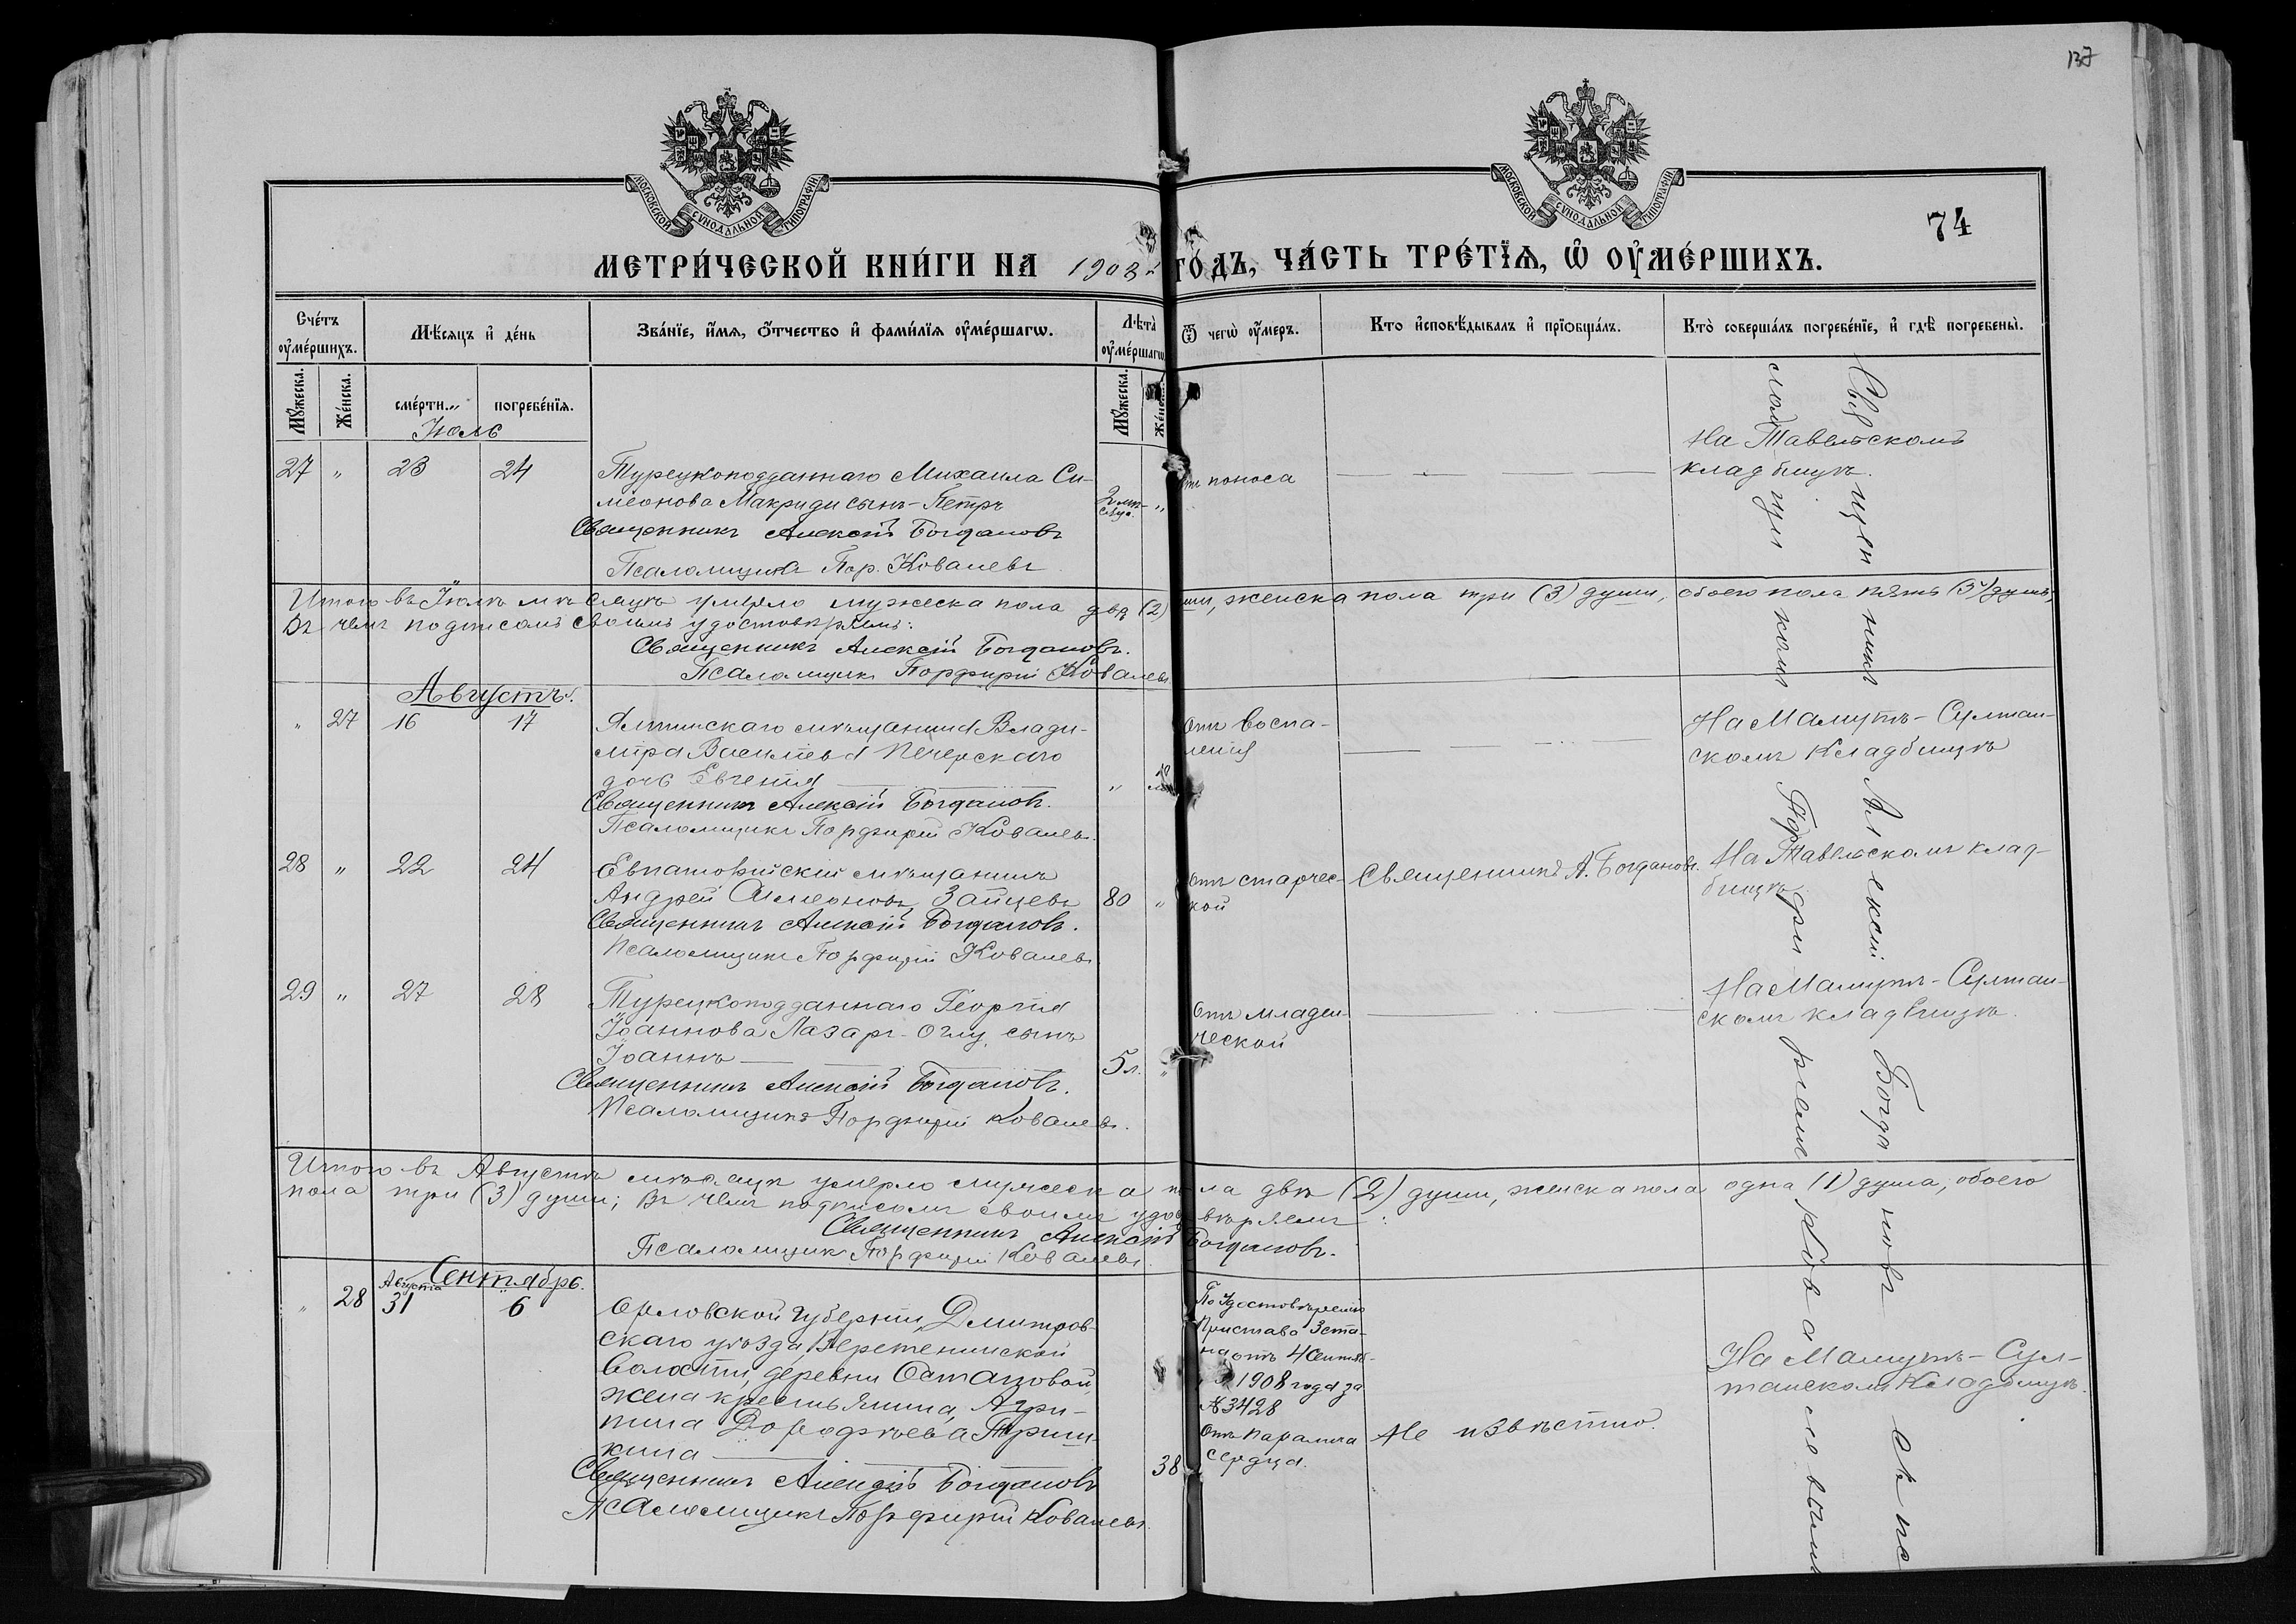 137
МОСКОВСКОЙ СУНОДАЛЬНОЙ ТИПОГРАФІИ
МОСКОВСКОЙ СУНОДАЛЬНОЙ ТИПОГРАФІИ
74
МЕТРИ́ЧЕСКОЙ КНИ́ГИ НА 1908 ГО́ДЪ, ЧА́СТЬ ТРЕ́ТЇѦ, Ѡ҆ ОУ҆МЕ́РШИХЪ.
Сче́тъ оу҆ме́ршихъ.
Мѣ́сяцъ и҆ де́нь
Зва́нїе, и҆́мя, ѻ҆́тчество и҆ фами́лїя оу҆ме́ршагѡ.
Лѣта̀ оу҆ме́ршагѡ
Ѿ чегѡ̀ оу҆́меръ.
Кто и҆сповѣ́дывалъ и҆ прїѡбща́лъ.
Кто̀ соверша́лъ погребе́нїе, и҆ гдѣ̀ погребены̀.
Мꙋ́жеска.
Же́нска.
сме́рти.
погребе́нїя.
Мꙋ́жеска.
Июль
27 " 23 24
Турецкоподданнаго Михаила Си-
меонова Макриди сынъ - Петръ
Священникъ Алексій Богдановъ
Псаломщикъ Пор. Ковалевъ
поноса
На Тавельскомъ
кладбищѣ.
Итого въ Іюлѣ мѣсяцѣ умерло мужеска пола двѣ (2) души, женска пола три (3) души, обоего пола пять (5) душъ,
Въ чемъ подписомъ своимъ удостовѣряемъ:
Священникъ Алексій Богдановъ.
Псаломщикъ Порфирій Ковалевъ
Августъ.
" 27 16 17
Ялтинскаго мѣщанина Влади-
мира Васильева Печерскаго
дочь Евгенія
Священникъ Алексій Богдановъ.
Псаломщикъ Порфирій Ковалевъ.
Отъ воспа-
ленія
На Мамутъ - Султан-
скомъ Кладбищѣ
28 " 22 24
Евпаторійскій мѣщанинъ
Андрей Симеоновъ Зайцевъ 80 "
Священникъ Алексій Богдановъ.
Псаломщикъ Порфирій Ковалевъ
Отъ старчес-
кой
Священникъ А. Богдановъ.
На Тавельскомъ клад-
бищѣ
29 " 27 28
Турецкоподданнаго Георгія
Іоаннова Лазарь-Оглу, сынъ
Іоаннъ 5 л. "
Священникъ Алексій Богдановъ.
Псаломщикъ Порфирій Ковалевъ.
Отъ младен-
ческой
На Мамутъ - Султан-
скомъ кладбищѣ.
Итого въ Августѣ мѣсяцѣ умерло мужеска пола двѣ (2) души, женска пола одна (1) душа, обоего
пола три (3) души; Въ чемъ подписомъ своимъ удостовѣряемъ:
Священникъ Алексій Богдановъ.
Псаломщикъ Порфирій Ковалевъ
Сентябрь.
Августа
" 28 31 6
Орловской губерніи, Дмитров-
скаго уѣзда Веретенинской
Волости, деревни Остаповой,
жена крестьянина, Агри-
пина Дорофѣева Триш-
кина 38
Священникъ Алексій Богдановъ
Псаломщикъ Порфирій Ковалевъ.
По удостовѣренію
Пристава 3 ста-
на отъ 4 Сентяб-
1908 года за
№ 3428
Отъ паралича
сердца.
Не извѣстно.
На Мамутъ - Сул-
танскомъ Кладбищѣ.
Священникъ Алексій Богдановъ
Псаломщикомъ Порфиріемъ Ковалевымъ